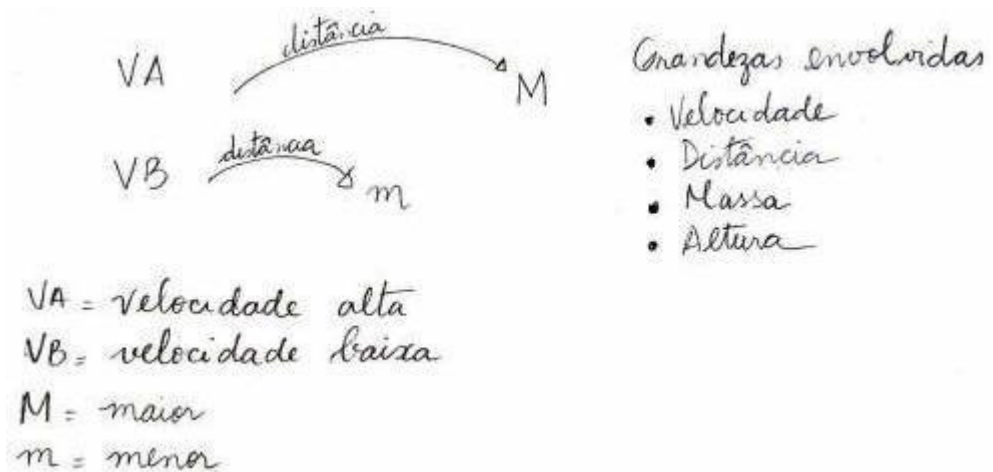 VA distância M
VB distância m
Grandezas envolvidas
• Velocidade
• Distância
• Massa
• Altura
VA = velocidade alta
VB = velocidade baixa
M = maior
m = menor